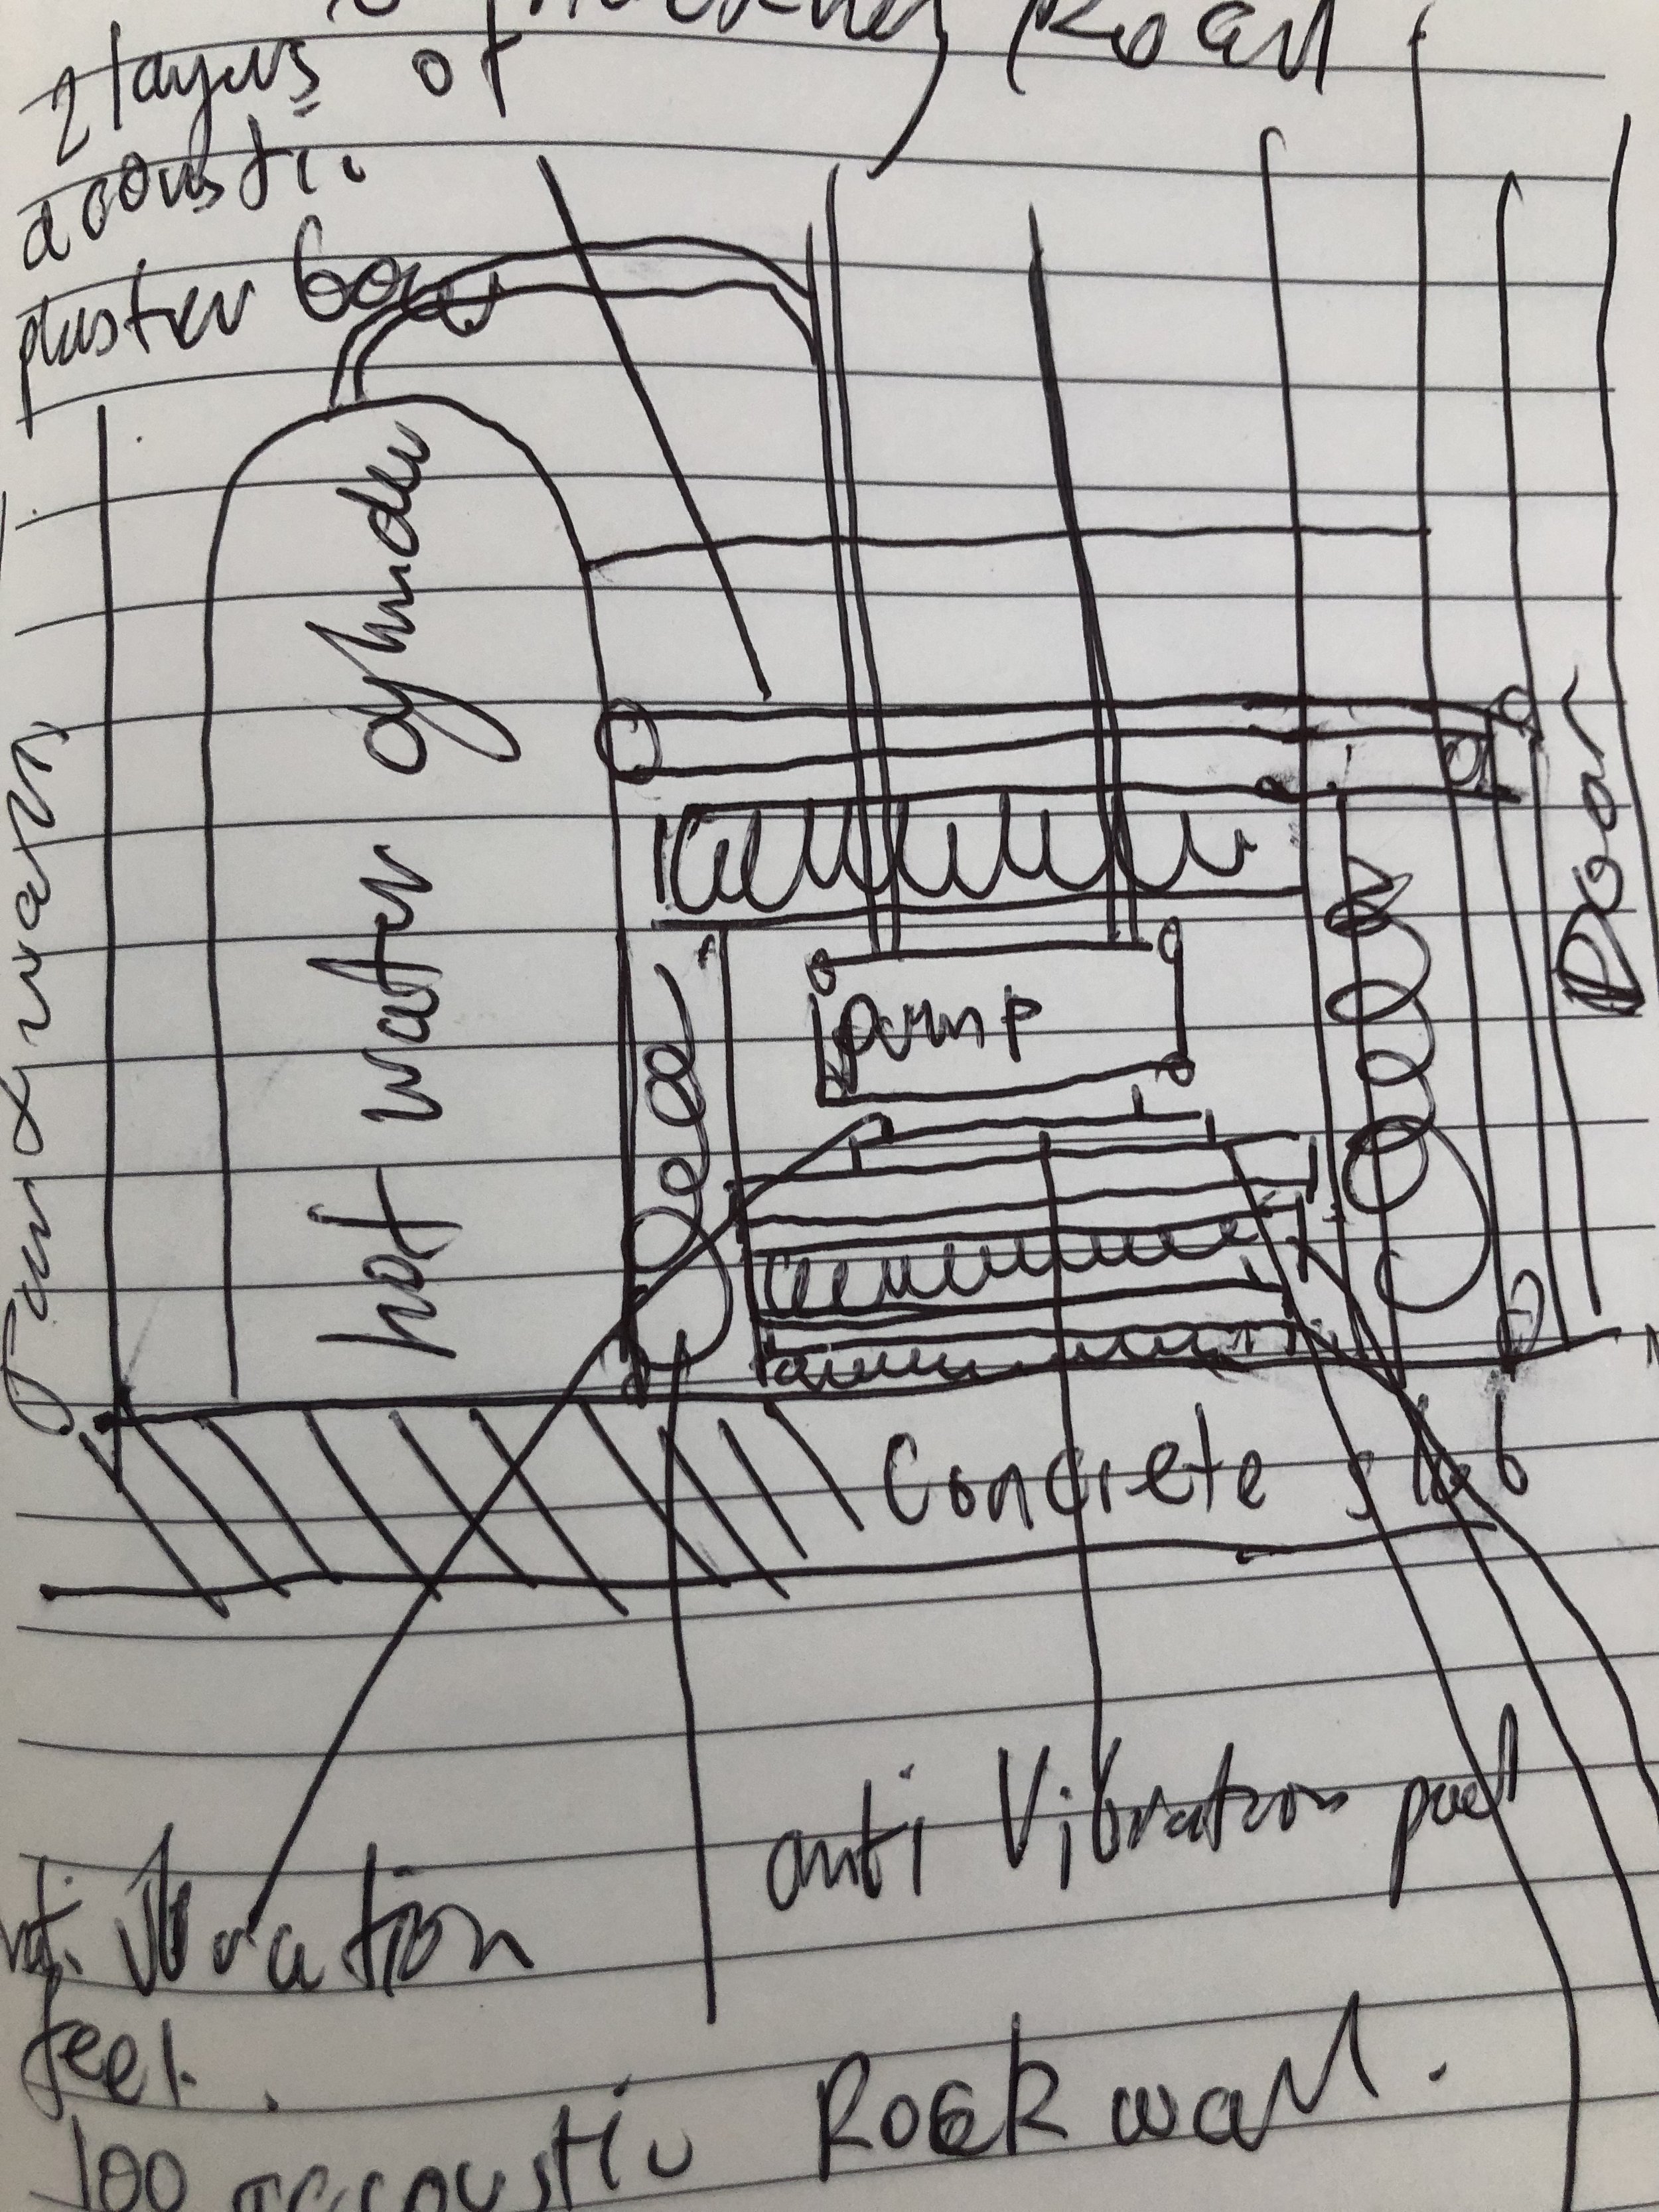 2 layers of
acoustic
plaster board
hot water cylinder
pump
Door
Concrete slab
anti Vibration pad
anti Vibration
feet.
100 accoustic Rockwall.